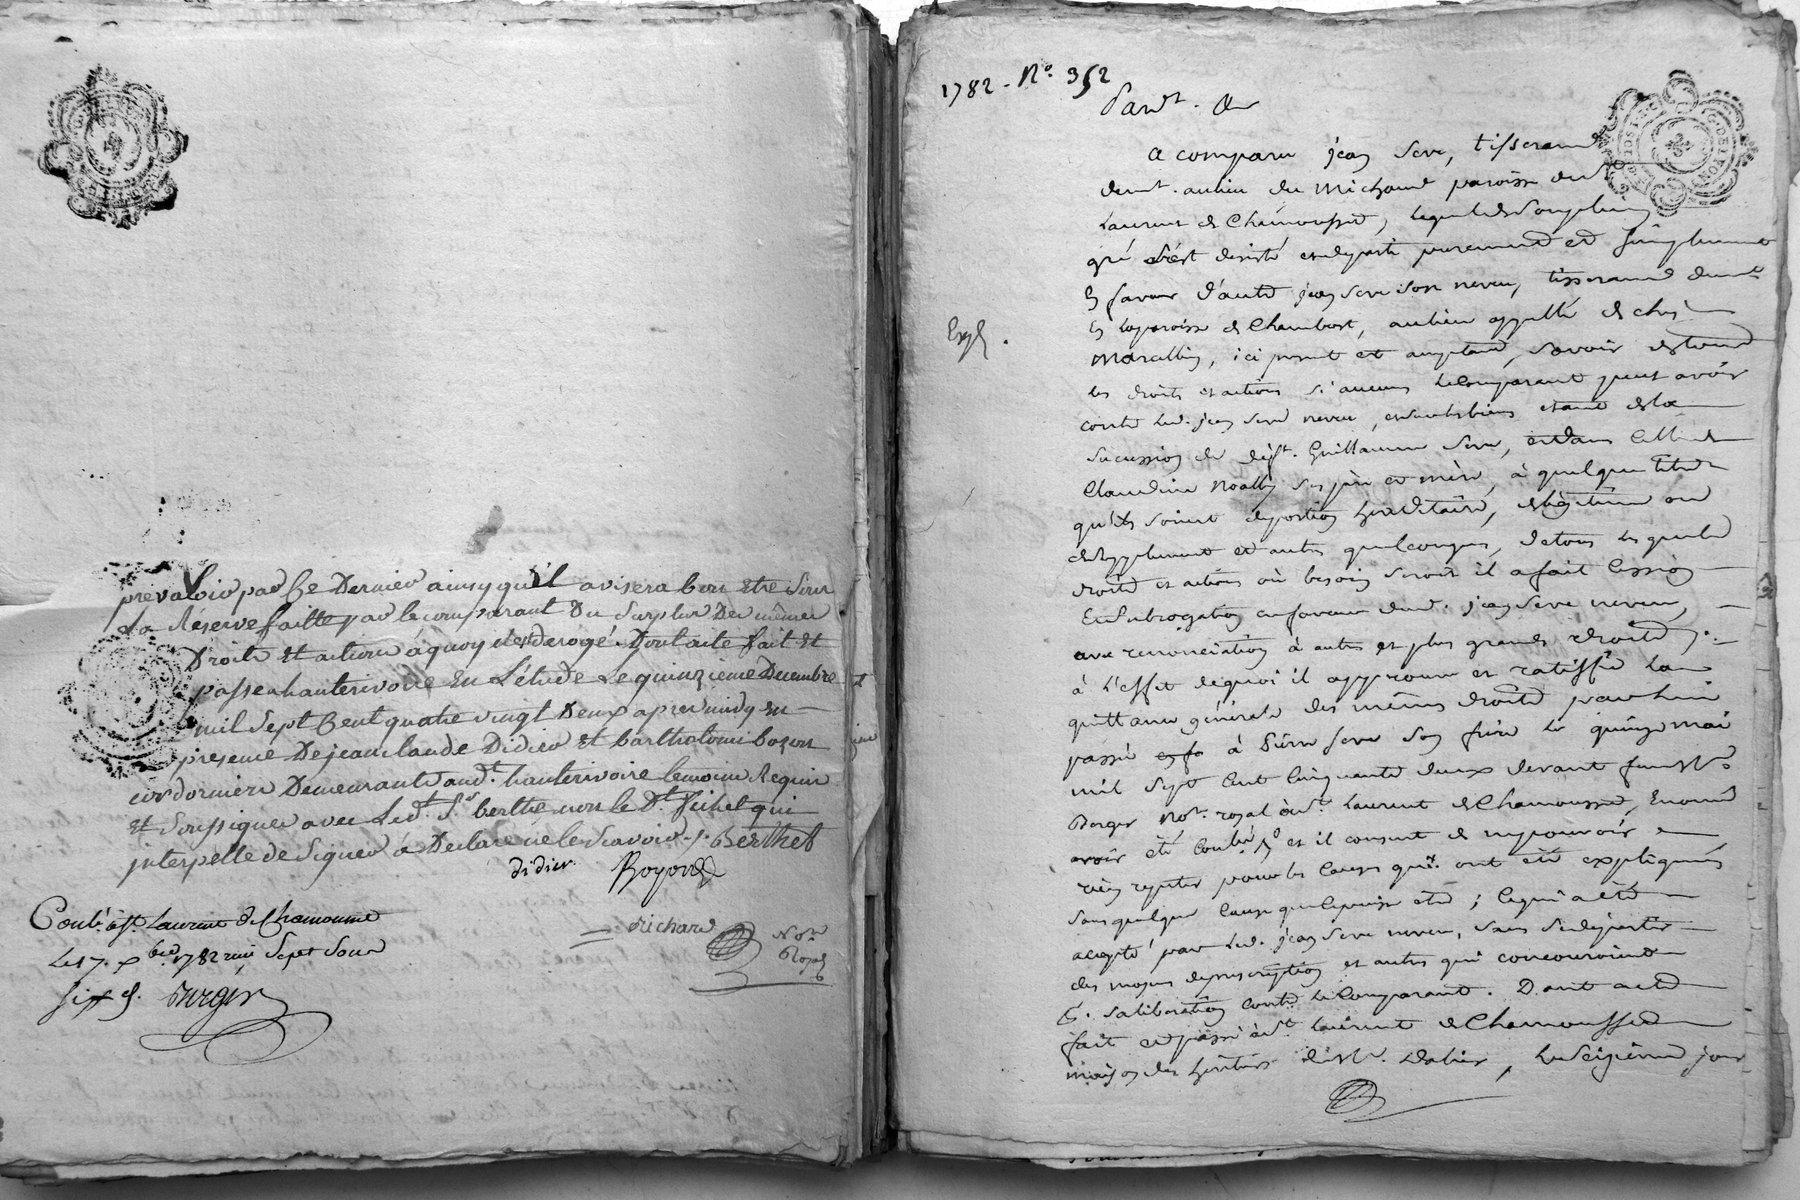 prevaloir par Ce Dernier ainsy qu'il avisera bon etre Sous
La Réserve faitte par le comparant Du Surplus De mêmes
Droits et actions à quoy n'est derogé. Dont acte fait et
passé a hauterivoire En L'étude Le quinzieme Decembre
mil Sept Cent quatre vingt Deux apres midy en
presence De jean claude Didier et bartholomi boyon
cordonniers Demeurants aud.t hauterivoire temoins Requis
Et Soussignes avec Led.t S.r berthet non le D.t qui
interpellé de Signer à Declaré ne le Scavoir ./. Berthet
didier Boyon
Richard No.re Royal
Conté à S.t Laurent de Chamousset
Le 17. x bre 1782 Sept Sous
Berger
1782 - N.o 352
Pard.t
a comparu jean Seve, tisserand
demt. au lieu du Michaud paroisse de S.t
Laurent de Chamousset, lequel de Son plein
gré s'est desisté et departi purement et Simplement
En faveur d'autre jean Seve son neveu, tisserand demt.
En la paroisse de Chambost, au lieu appellé de chez
Marcellin, ici present et acceptant, Savoir de tous
les droits et actions si aucuns le Comparant peut avoir
contre led. jean Seve neveu, et sur les biens etant de la
Succession de def.t Guillaume Seve, et dans celle de
Claudine Noally Ses père et mère, à quelque titre
qu'ils soient de portion hereditaire, de légitime ou
de Supplement et autres quelconques, de tous lesquels
droits et actions où besoin Seroit il a fait Cession
Et Subrogation en faveur dud. jean Seve neveu,
avec renonciation à autres et plus grands droits ;
à L'effet de quoi il approuve et ratiffie la
quittance générale des mêmes droits par lui
passé à Pierre Seve Son frère le quinze mai
mil Sept Cent Cinquante deux devant
Berger Not. royal à S.t Laurent de Chamousset,
avoir été Conté, et il consent de ne pouvoir
rien repeter pour les Causes qui y ont été expliquées
Sous quelque Cause que ce puisse etre ; ce qui a été
accepté par led. jean Seve neveu, Sans Se departir
des moyens de prescription et autres qui concourroient
à Sa libération contre le Comparant. Dont acte
fait et passé à S.t Laurent de Chamousset
maison des heritiers, Le Seizième jour